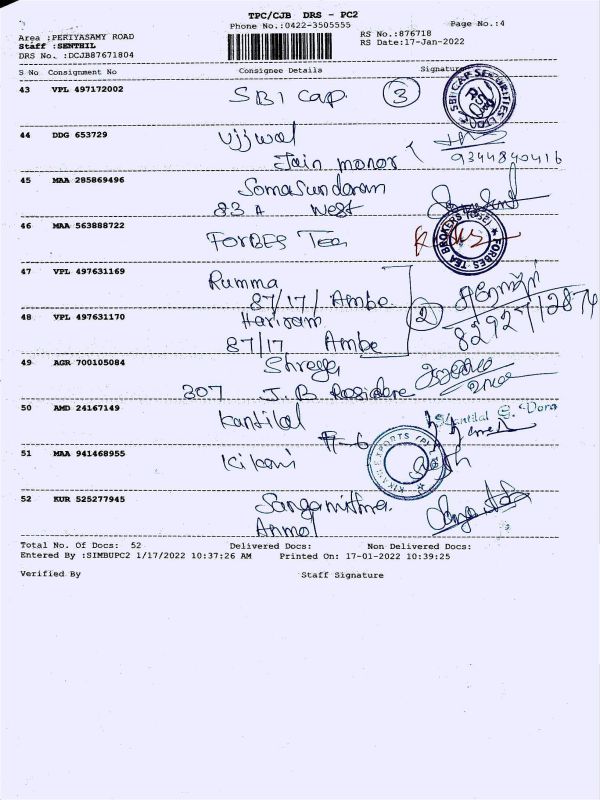 TPC/CJB DRS - PC2
Phone No.:0422-3505555
Page No.:4
Area :PERIYASAMY ROAD
Staff :SENTHIL
DRS No. :DCJB87671804
RS No.:876718
RS Date:17-Jan-2022
S No Consignment No Consignee Details Signature
43 VPL 497172002 SBI Cap. 3
SBI CAP SECURITIES LTD
44 DDG 653729 Ujjwal
Jain manor
9344840416
45 MAA 285869496 Somasundaram
83 A West
46 MAA 563888722 FORBES Tea
FORBES TEA BROKERS (CBE)
47 VPL 497631169 Rumma
87/17/ Ambe
48 VPL 497631170 Hariram 2
87/17 Ambe
49 AGR 700105084 Shreya
307 J.B Residere
50 AMD 24167149 Kantilal
Kantilal G. Vora
51 MAA 941468955 Kikani
52 KUR 525277945 Sangamithra.
Anmol
Total No. Of Docs: 52 Delivered Docs: Non Delivered Docs:
Entered By :SIMBUPC2 1/17/2022 10:37:26 AM Printed On: 17-01-2022 10:39:25
Verified By Staff Signature